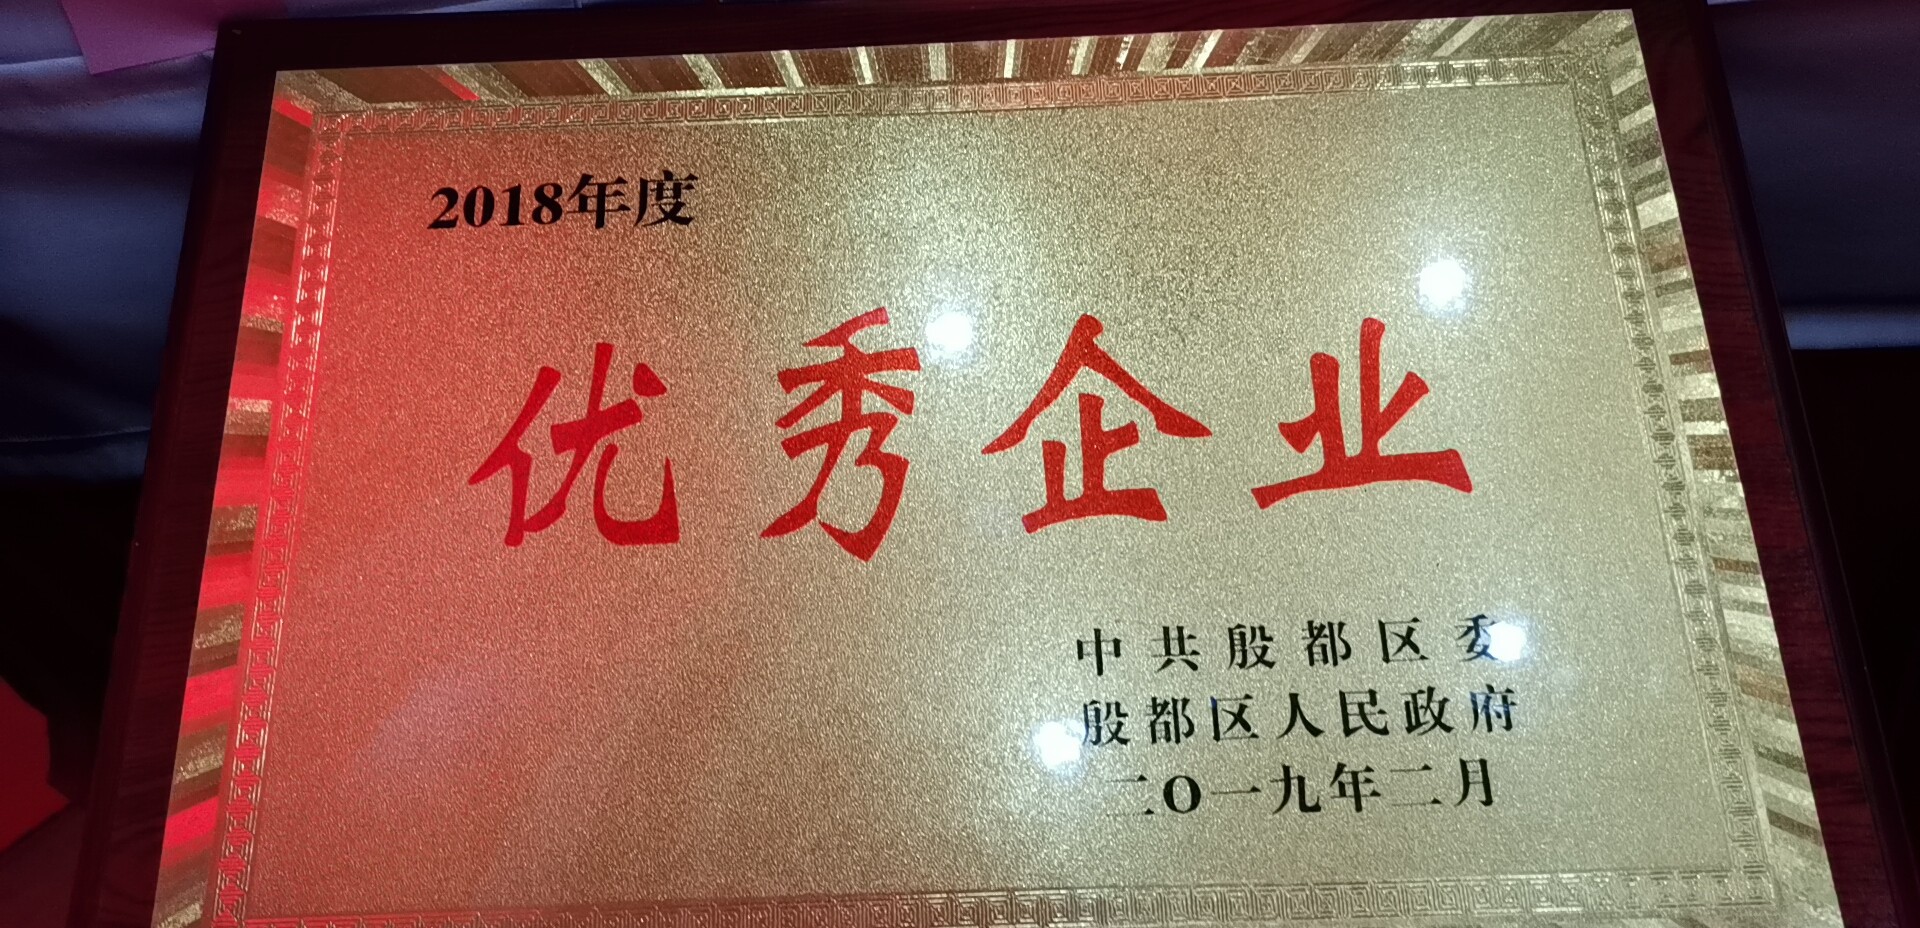 2018年度
优秀企业
中共殷都区委
殷都区人民政府
二O一九年二月